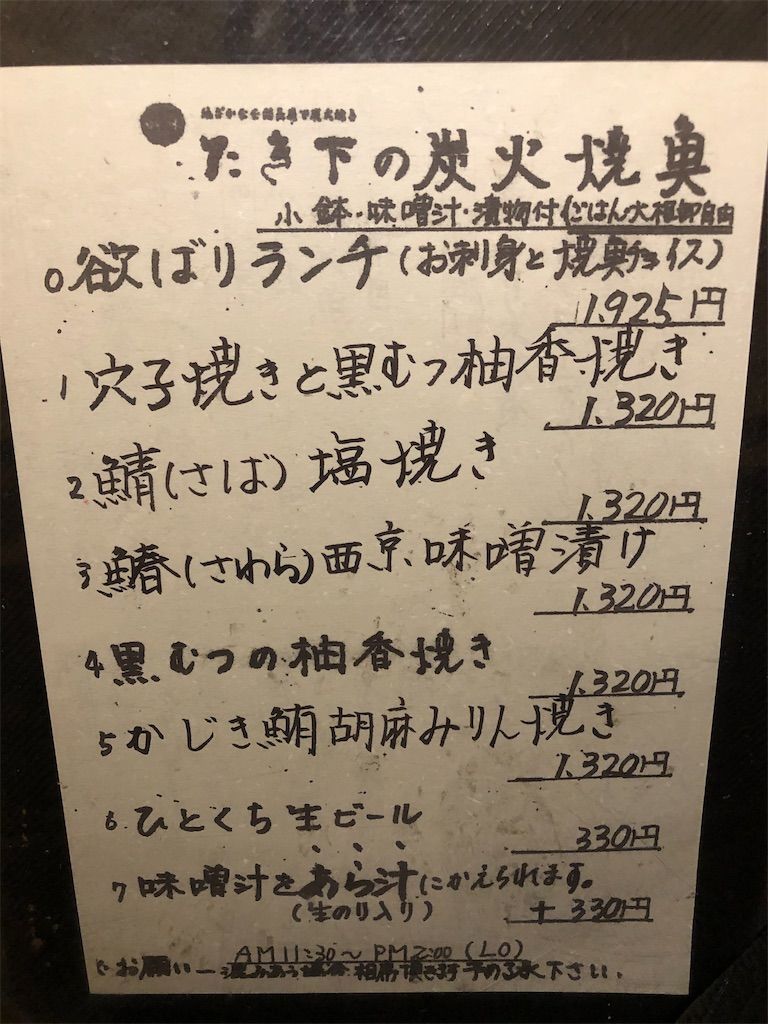 たき下の炭火焼魚
小鉢・味噌汁・漬物付(ごはん大根卸自由
0 欲ばりランチ(お刺身と焼魚チョイス)
1,925円
1 穴子焼きと黒むつ柚香焼き
1,320円
2 鯖(さば)塩焼き
1,320円
3 鰆(さわら)西京味噌漬け
1,320円
4 黒むつの柚香焼き
1,320円
5 かじき鮪胡麻みりん焼き
1,320円
6 ひとくち生ビール
330円
7 味噌汁をあら汁にかえられます。
(生のり入り) +330円
AM11:30〜PM2:00(LO)
お願い 下さい.